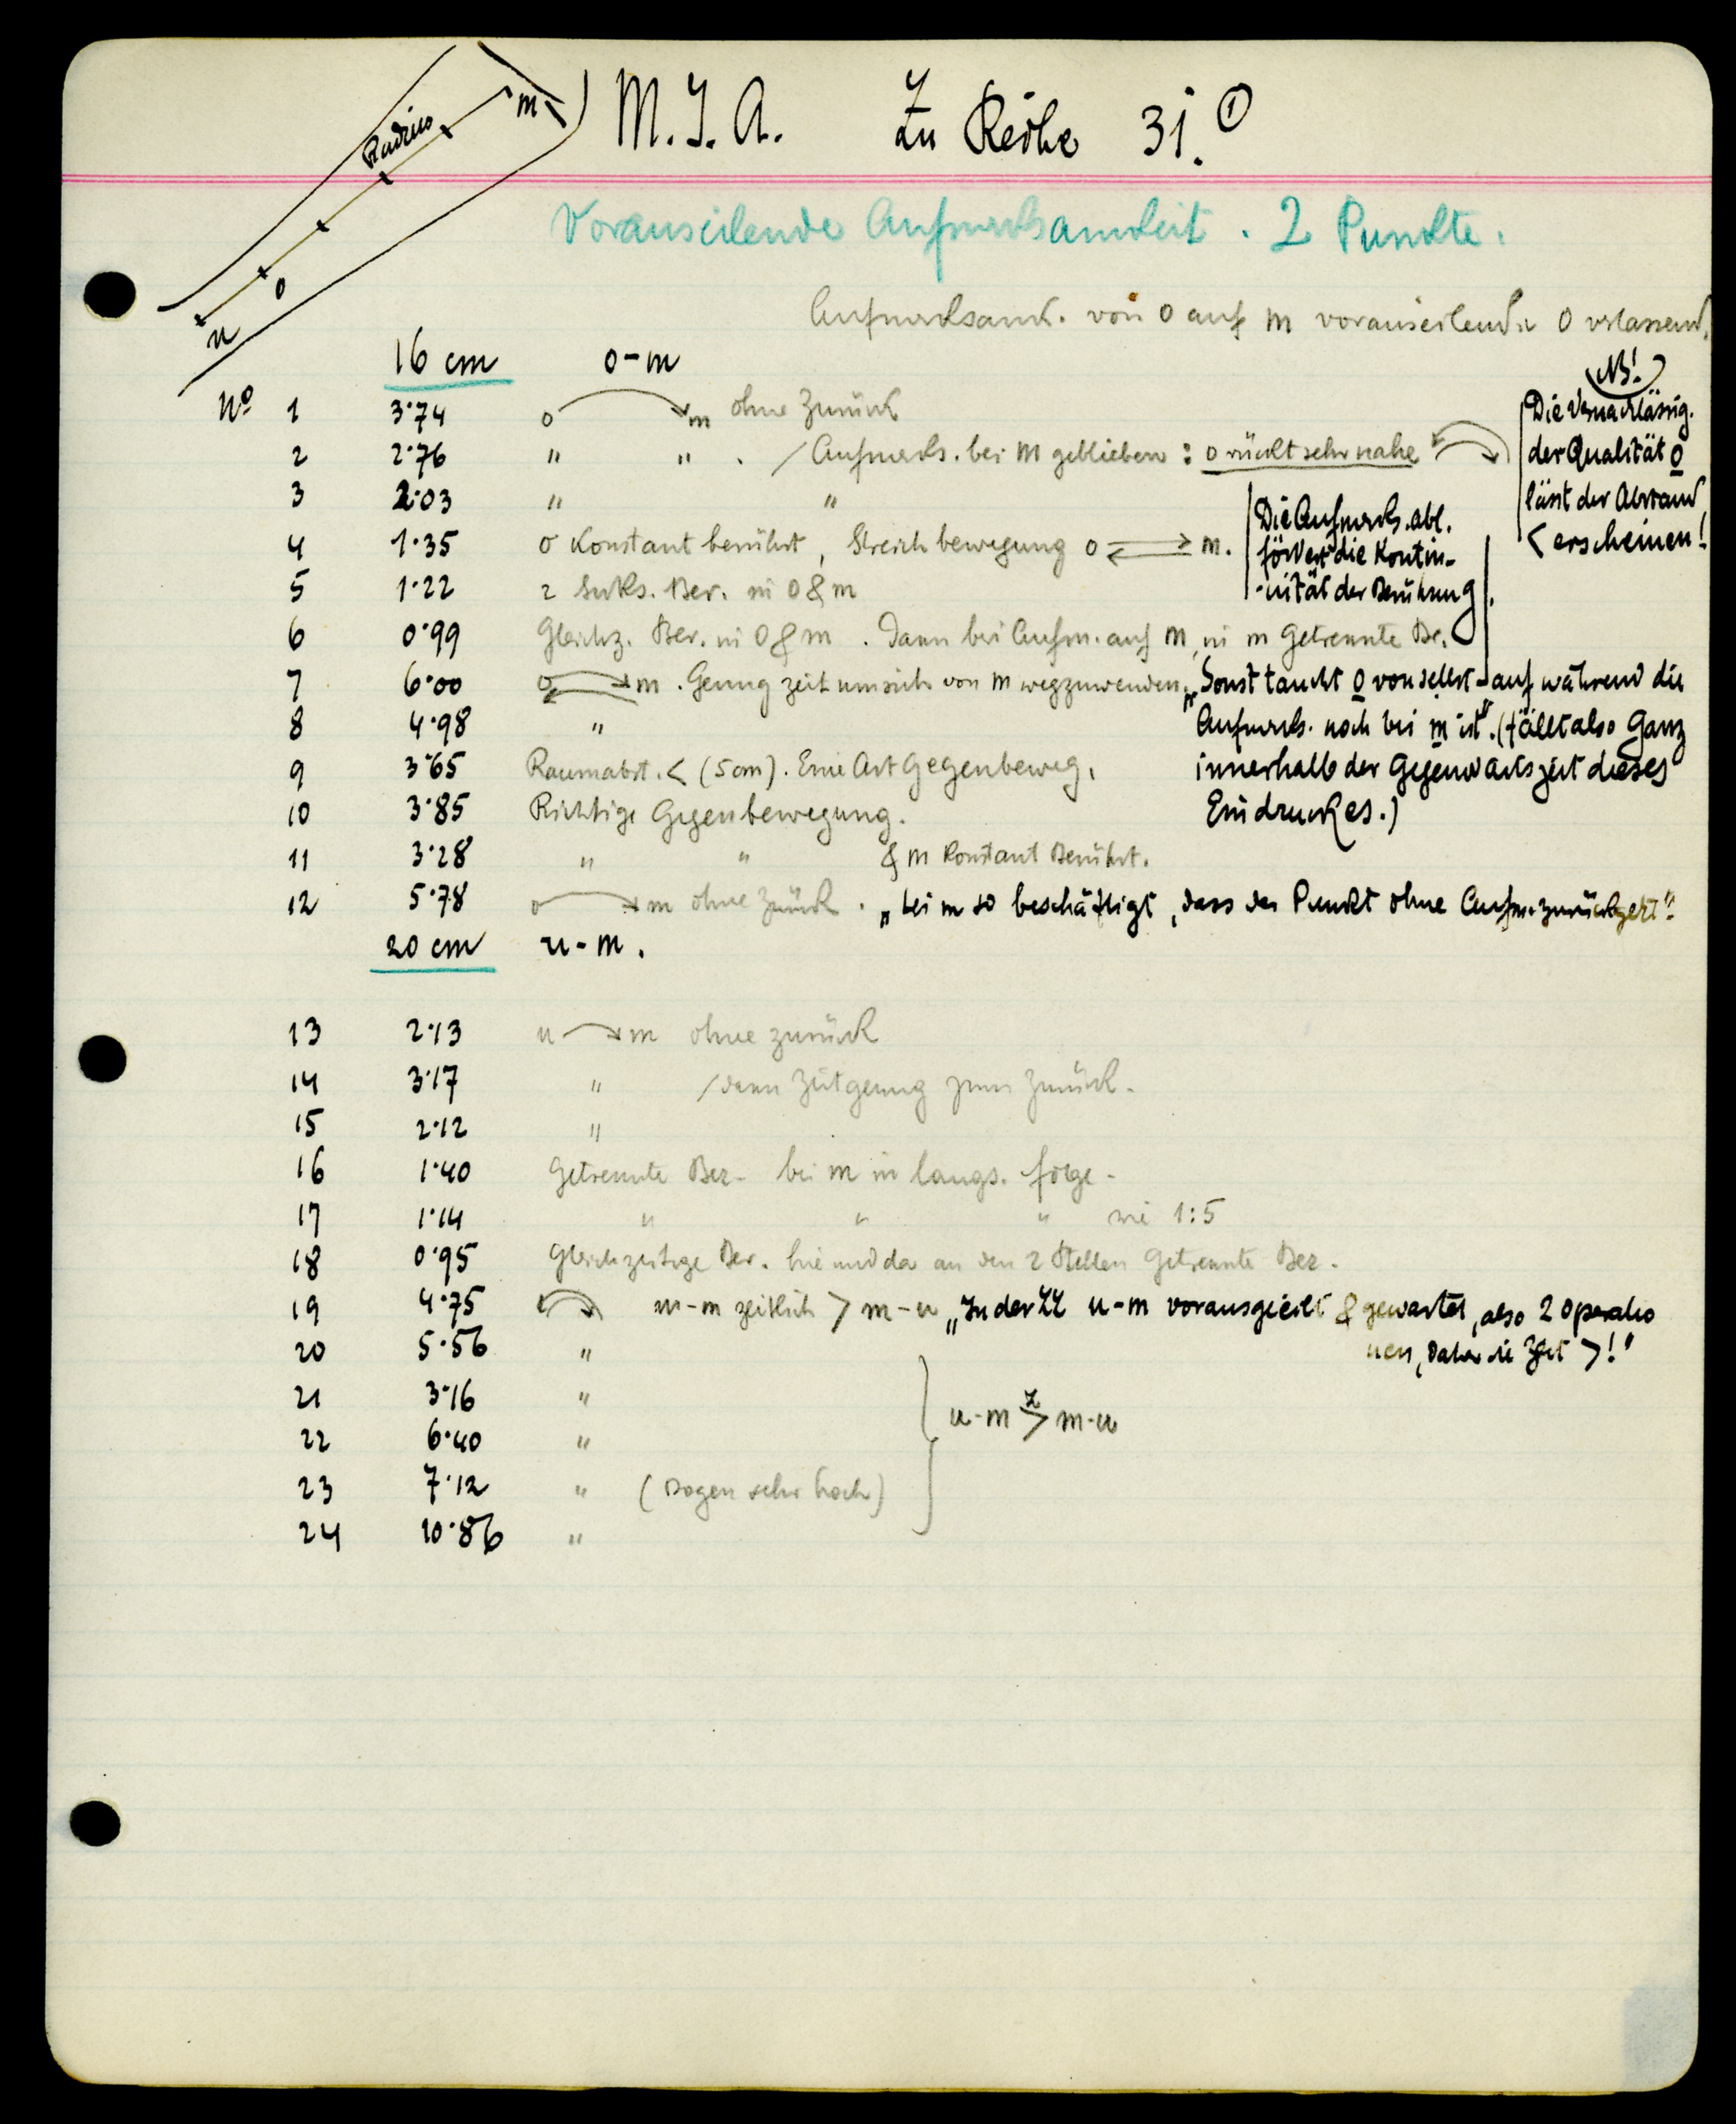 Radius
m
o
u
M.I.A. Zu Reihe 31. ①
Vorauseilende Aufmerksamkeit. 2 Punkte.
Aufmerksamk. von o auf m vorauseilend & o verlassend.
16 cm o-m
No 1 3·74 o → m ohne Zurück
2 2·76 " " . / Aufmerks. bei m geblieben : o rückt sehr nahe
NB!
Die Vernachlässig.
der Qualität o
lässt der Abstand
< erscheinen!
3 2·03 " "
4 1·35 o Konstant berührt, Streichbewegung o ⇄ m.
Die Aufmerks. abl.
fördert die Kontin-
-uität der Berührung.
5 1·22 2 Suks. Ber. in o & m
6 0·99 Gleichz. Ber. in o & m . Dann bei Aufm. auf m, in m Getrennte Be.
7 6·00 o ⇄ m . Genug zeit um sich von m wegzuwenden.
„Sonst taucht o von selbst auf während die
Aufmerks. noch bei m ist". (fällt also Ganz
innerhalb der Gegenwartszeit dieses
Eindruckes.)
8 4·98 "
9 3·65 Raumabst. < (5cm). Eine Art Gegenbeweg.
10 3·85 Richtige Gegenbewegung.
11 3·28 " " & m Konstant Berührt.
12 5·78 o → m ohne Zurück . „bei m so beschäftigt, dass der Punkt ohne Aufm. zurückgeht".
20 cm u-m.
13 2·13 u → m ohne zurück
14 3·17 " / dann Zeit genug zum Zurück.
15 2·12 "
16 1·40 Getrennte Ber. bei m in langs. folge.
17 1·14 " " " wie 1:5
18 0·95 Gleichzeitige Ber. hie und da an den 2 Stellen Getrennte Ber.
19 4·75 u-m zeitlich > m-u „In der ZZ u-m vorausgeeilt & gewartet, also 2 Operatio
nen, daher die Zeit >!"
20 5·56 "
21 3·16 "
u-m > m-u
22 6·40 "
23 7·12 " (Bogen sehr hoch)
24 10·86 "